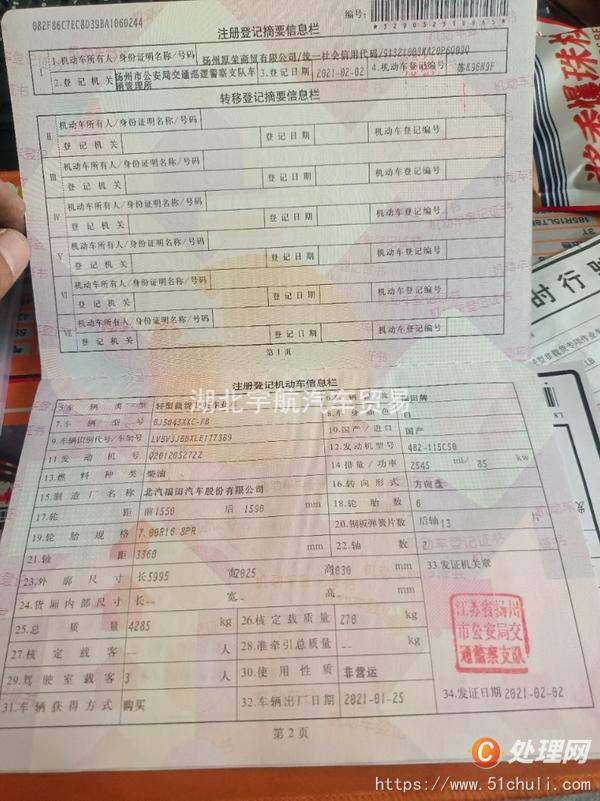 0B2F86C7EC8D39BA1060244
编号:
注册登记摘要信息栏
I 1.机动车所有人/身份证明名称/号码 扬州厚荣商贸有限公司/统一社会信用代码/
2.登记机关 扬州市公安局交通巡逻警察支队车辆管理所 3.登记日期 2021-02-02 4.机动车登记编号 苏K96K9F
转移登记摘要信息栏
II 机动车所有人/身份证明名称/号码
登记机关 登记日期 机动车登记编号
III 机动车所有人/身份证明名称/号码
登记机关 登记日期 机动车登记编号
IV 机动车所有人/身份证明名称/号码
登记机关 登记日期 机动车登记编号
V 机动车所有人/身份证明名称/号码
登记机关 登记日期 机动车登记编号
VI 机动车所有人/身份证明名称/号码
登记机关 登记日期 机动车登记编号
VII 机动车所有人/身份证明名称/号码
登记机关 登记日期 机动车登记编号
第1页
注册登记机动车信息栏
湖北宇航汽车贸易
5.车辆类型
7.车辆型号 BJ5043XXC-F8 8.车身颜色 白
9.车辆识别代号/车架号 LVBV3JBBXLE177389 10.国产/进口 国产
11.发动机号 Q201205272Z 12.发动机型号 4B2-115C50
13.燃料种类 柴油 14.排量/功率 2545 ml/ 85 kw
15.制造厂名称 北汽福田汽车股份有限公司 16.转向形式 方向盘
17.轮距 前1550 后1590 mm 18.轮胎数 6
19.轮胎规格 7.00R16 8PR 20.钢板弹簧片数 后轴13 片
21.轴距 3360 mm 22.轴数 2
23.外廓尺寸 长5995 宽2025 高 mm 33.发证机关章
24.货厢内部尺寸 长-- 宽-- 高-- mm
25.总质量 4285 kg 26.核定载质量 270 kg
27.核定载客 -- 人 28.准牵引总质量 -- kg
29.驾驶室载客 3 人 30.使用性质 非营运
31.车辆获得方式 购买 32.车辆出厂日期 2021-01-25 34.发证日期 2021-02-02
江苏省扬州
市公安局交
通警察支队
第2页
处理网
https://www.51chuli.com/